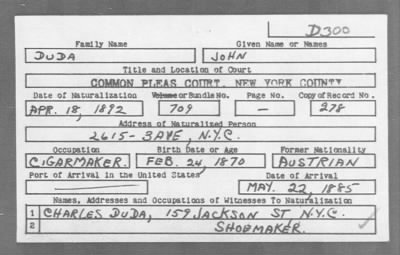 D300
Family Name Given Name or Names
DUDA JOHN
Title and Location of Court
COMMON PLEAS COURT, NEW YORK COUNTY
Date of Naturalization Volume or Bundle No. Page No. Copy of Record No.
APR. 18, 1892 709 — 278
Address of Naturalized Person
2615-3AVE, N.Y.C.
Occupation Birth Date or Age Former Nationality
CIGARMAKER. FEB. 24, 1870 AUSTRIAN
Port of Arrival in the United States Date of Arrival
MAY. 22, 1885
Names, Addresses and Occupations of Witnesses To Naturalization
1 CHARLES DUDA, 159 JACKSON ST N.Y.C.
2 SHOEMAKER.